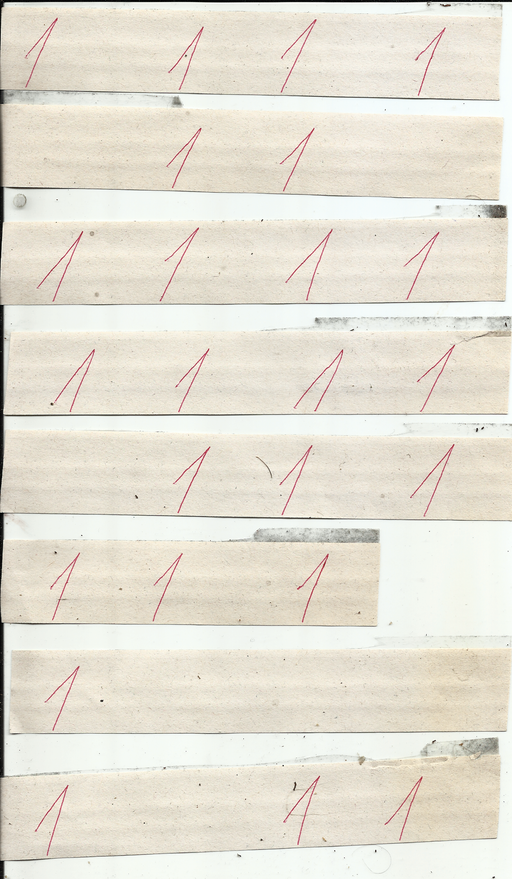 1 1 1 1
1 1
1 1 1 1
1 1 1 1
1 1 1
1 1 1
1
1 1 1